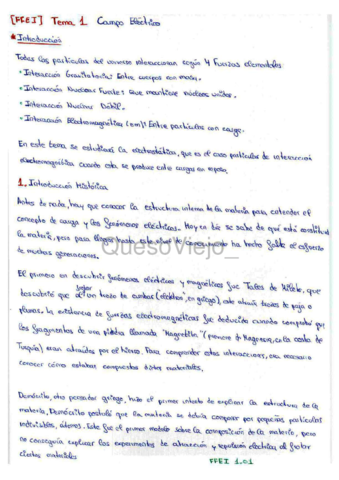 [FFEI] Tema 1 Campo Eléctrico
Introducción
Todas las partículas del universo interaccionan según 4 Fuerzas elementales:
· Interacción Gravitatoria: Entre cuerpos con masa.
· Interacción Nuclear Fuerte: Que mantiene núcleos unidos.
· Interacción Nuclear Débil.
· Interacción Electromagnética (em): Entre partículas con carga.
En este tema se estudiará la electrostática, que es el caso particular de interacción
electromagnética cuando esta se produce entre cargas en reposo.
1. Introducción Histórica
Antes de nada, hay que conocer la estructura interna de la materia para entender el
concepto de carga y los fenómenos eléctricos. Hoy en día se sabe de qué está constituida
la materia, pero para llegar hasta este nivel de conocimiento ha hecho falta el esfuerzo
de muchas generaciones.
QuesoViejo_
El primero en descubrir fenómenos eléctricos y magnéticos fue Tales de Mileto, que
descubrió que al frotar un trozo de ámbar ("elektron", en griego), este atraía trozos de paja o
plumas. La existencia de fuerzas electromagnéticas fue deducida cuando comprobó que
los fragmentos de una piedra llamada "Magnetita" (proviene de Magnesia, en la costa de
Turquía) eran atraídos por el hierro. Para comprender estas interacciones, era necesario
conocer cómo estaban compuestos estos materiales.
Demócrito, otro pensador griego, hizo el primer intento de explicar la estructura de la
materia. Demócrito postuló que la materia se debía componer por pequeñas partículas
indivisibles, átomos. Este fue el primer modelo sobre la composición de la materia, pero
no conseguía explicar los experimentos de atracción y repulsión eléctrica al frotar
ciertos materiales
FFEI 1.01